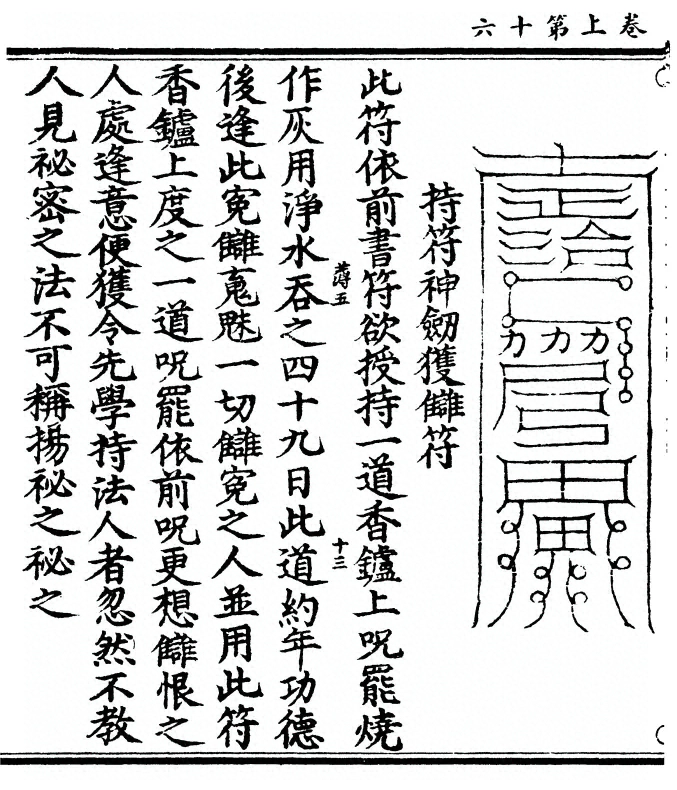 卷上第十六
持符神劔獲讎符
此符依前書符欲授持一道香鑪上呪罷燒
薄五
十三
作灰用淨水吞之四十九日此道約年功德
後逢此寃讎鬼魅一切讎寃之人並用此符
香鑪上度之一道呪罷依前呪更想讎恨之
人處逢意便獲令先學持法人者忽然不教
人見祕密之法不可稱揚祕之祕之